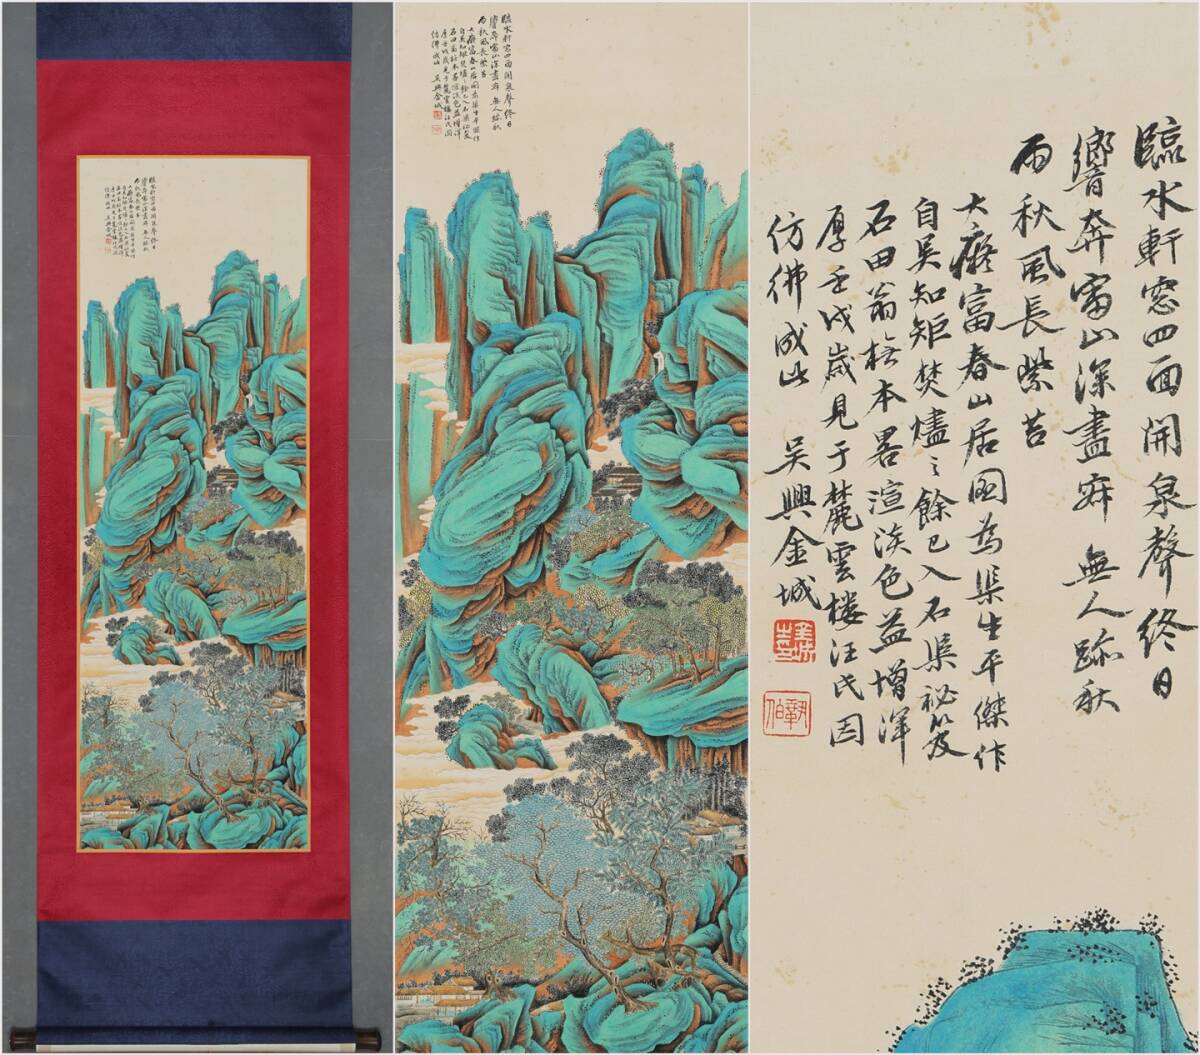 臨水軒窓四面開泉聲終日
響奔雷山深盡日無人跡秋
雨秋風長紫苔
大癡富春山居圖為渠生平傑作
自吳知矩焚燼之餘已入石渠秘笈
石田翁橅本畧渲淡色益增渾
厚壬戌歲見于麓雲樓汪氏因
仿佛成此 吳興金城